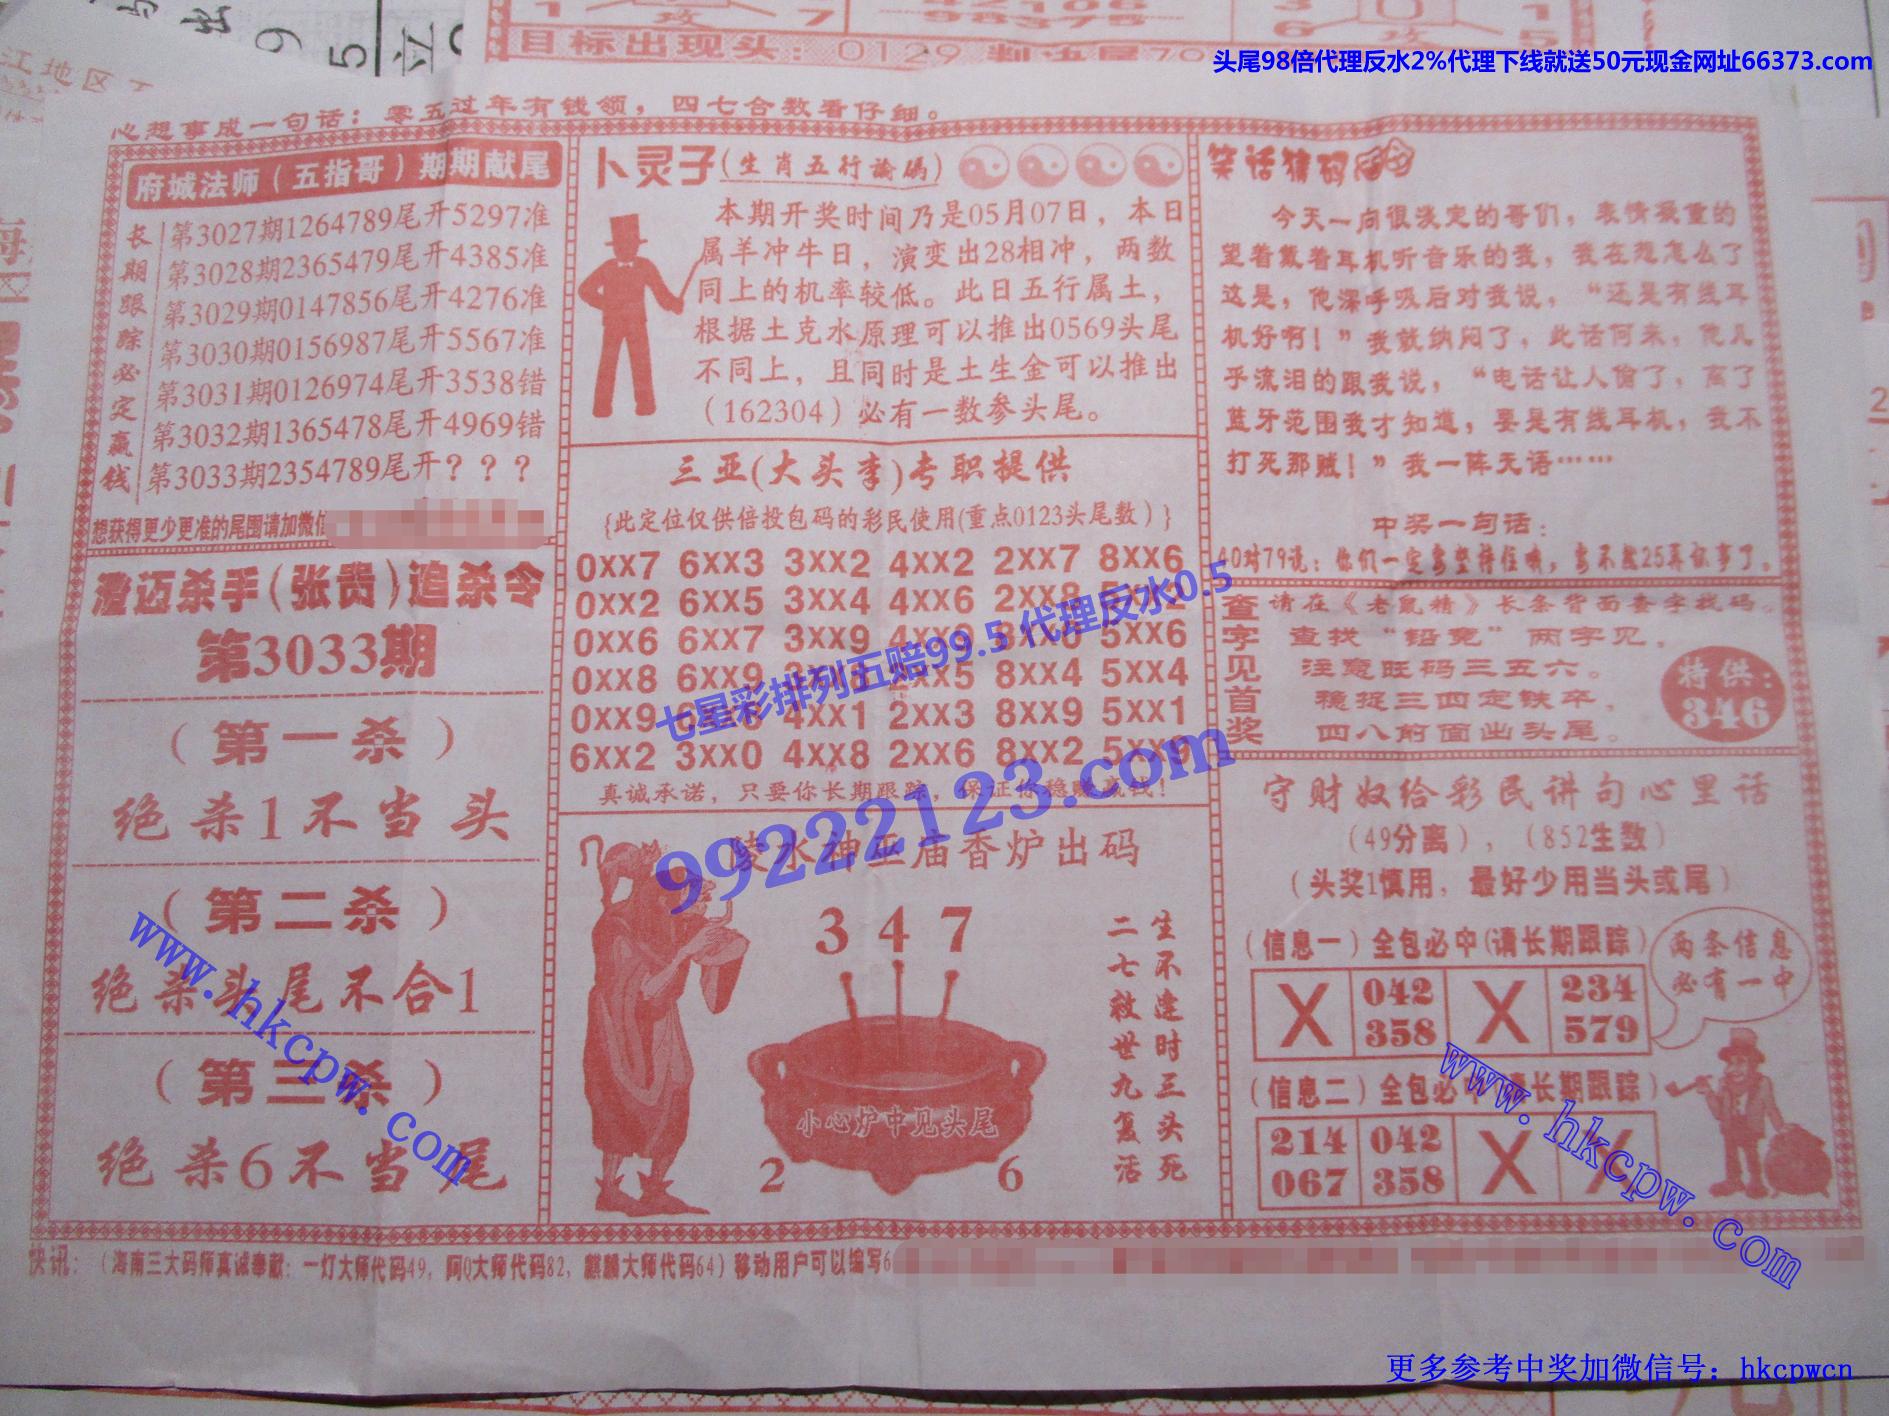 头尾98倍代理反水2%代理下线就送50元现金网址66373.com
目标出现头：0129 判决尾70
江地区
心想事成一句话：零五过年有钱领，四七合数看仔细。
府城法师（五指哥）期期献尾
长期跟踪必定赢钱
第3027期1264789尾开5297准
第3028期2365479尾开4385准
第3029期0147856尾开4276准
第3030期0156987尾开5567准
第3031期0126974尾开3538错
第3032期1365478尾开4969错
第3033期2354789尾开？？？
想获得更少更准的尾围请加微信
澄迈杀手（张贵）追杀令
第3033期
（第一杀）
绝杀1不当头
（第二杀）
绝杀头尾不合1
（第三杀）
绝杀6不当尾
卜灵子（生肖五行論碼）
本期开奖时间乃是05月07日，本日
属羊冲牛日，演变出28相冲，两数
同上的机率较低。此日五行属土，
根据土克水原理可以推出0569头尾
不同上，且同时是土生金可以推出
（162304）必有一数参头尾。
三亚(大头李)专职提供
{此定位仅供倍投包码的彩民使用(重点0123头尾数）}
0xx7 6xx3 3xx2 4xx2 2xx7 8xx6
0xx2 6xx5 3xx4 4xx6 2xx8
0xx6 6xx7 3xx9 5xx6
0xx8 6xx9 8xx4 5xx4
0xx9 4xx1 2xx3 8xx9 5xx1
6xx2 3xx0 4xx8 2xx6 8xx2 5xx9
真诚承诺，只要你长期跟踪，保证你稳赚赢钱！
七星彩排列五赔99.5 代理反水0.5
99222123.com
陵水神巫庙香炉出码
3 4 7
小心炉中见头尾
2 6
生不逢时三头死
二七救世九复活
笑话猜码
今天一向很淡定的哥们，表情凝重的
望着戴着耳机听音乐的我，我在想怎么了
这是，他深呼吸后对我说，“还是有线耳
机好啊！”我就纳闷了，此话何来，他几
乎流泪的跟我说，“电话让人偷了，离了
蓝牙范围我才知道，要是有线耳机，我不
打死那贼！”我一阵无语……
中奖一句话：
40对79说：你们一定要坚持住哦，要不然25再议事了。
查字见首奖
请在《老鼠精》长条背面查字找码
查找“铅宽”两字见，
注意旺码三五六。
稳捉三四定铁卒，
四八前面出头尾。
特供：
346
守财奴给彩民讲句心里话
（49分离），（852生数）
（头奖1慎用，最好少用当头或尾）
（信息一）全包必中(请长期跟踪）
X 042 358 X 234 579
两条信息
必有一中
（信息二）全包必中(请长期跟踪）
214 067 042 358 X X
www.hkcpw.com
www.hkcpw.com
快讯：（海南三大码师真诚奉献：一灯大师代码49，阿Q大师代码82，麒麟大师代码64）移动用户可以编写6
更多参考中奖加微信号：hkcpwcn